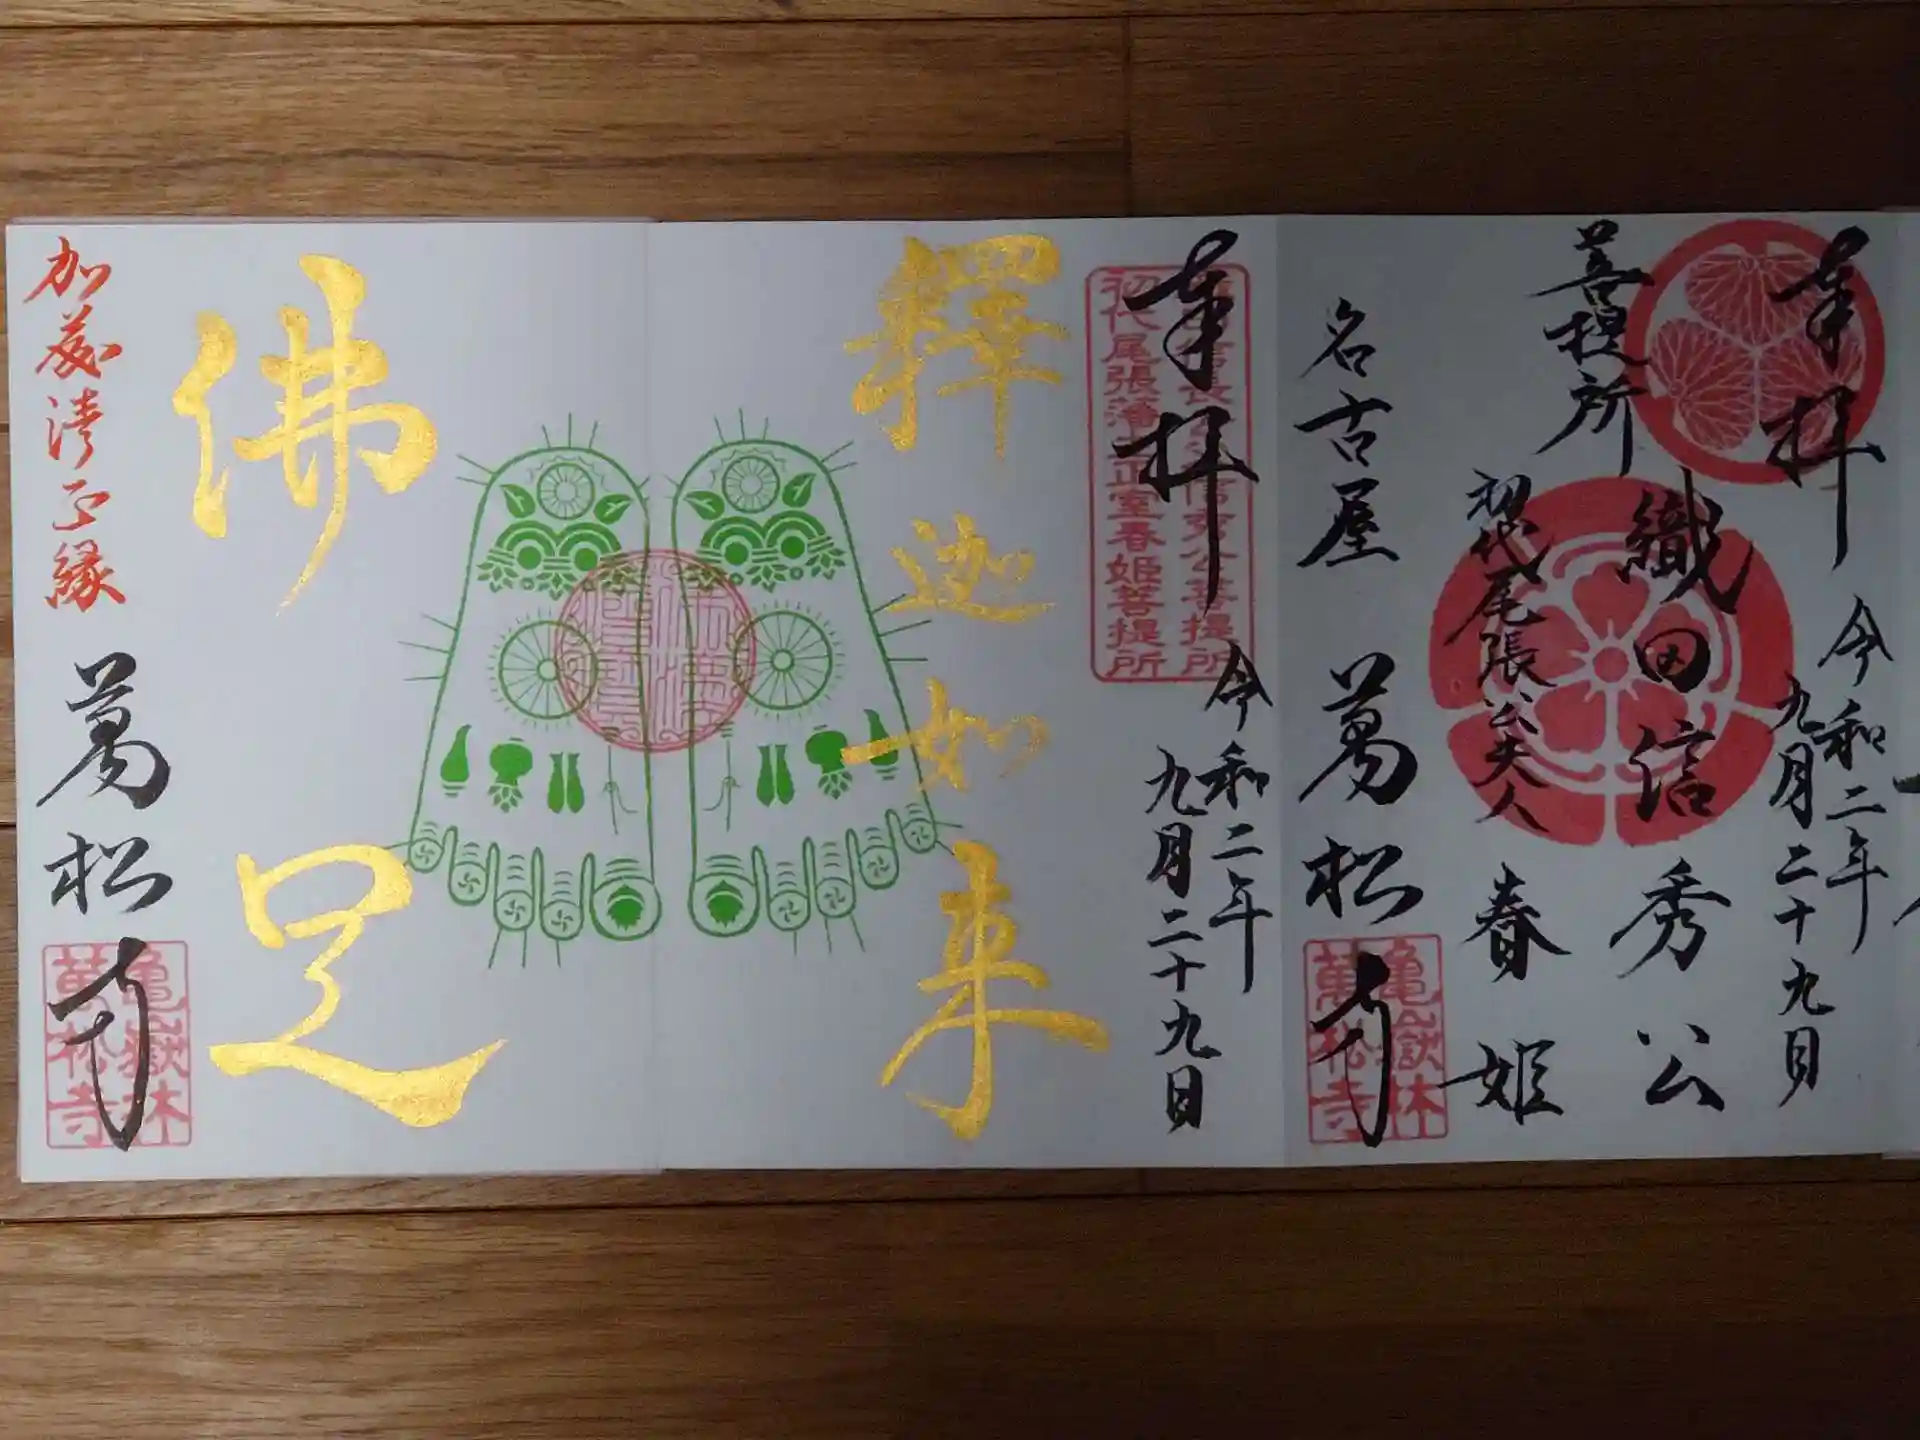 奉拝
令和二年
九月二十九日
織田信秀公
菩提所
初代尾張公夫人
春姫
名古屋
萬松寺
亀嶽林
萬松寺
奉拝
令和二年
九月二十九日
初代尾張藩主正室春姫菩提所
釋迦如来
佛足
加藤清正縁
萬松寺
亀嶽林
萬松寺